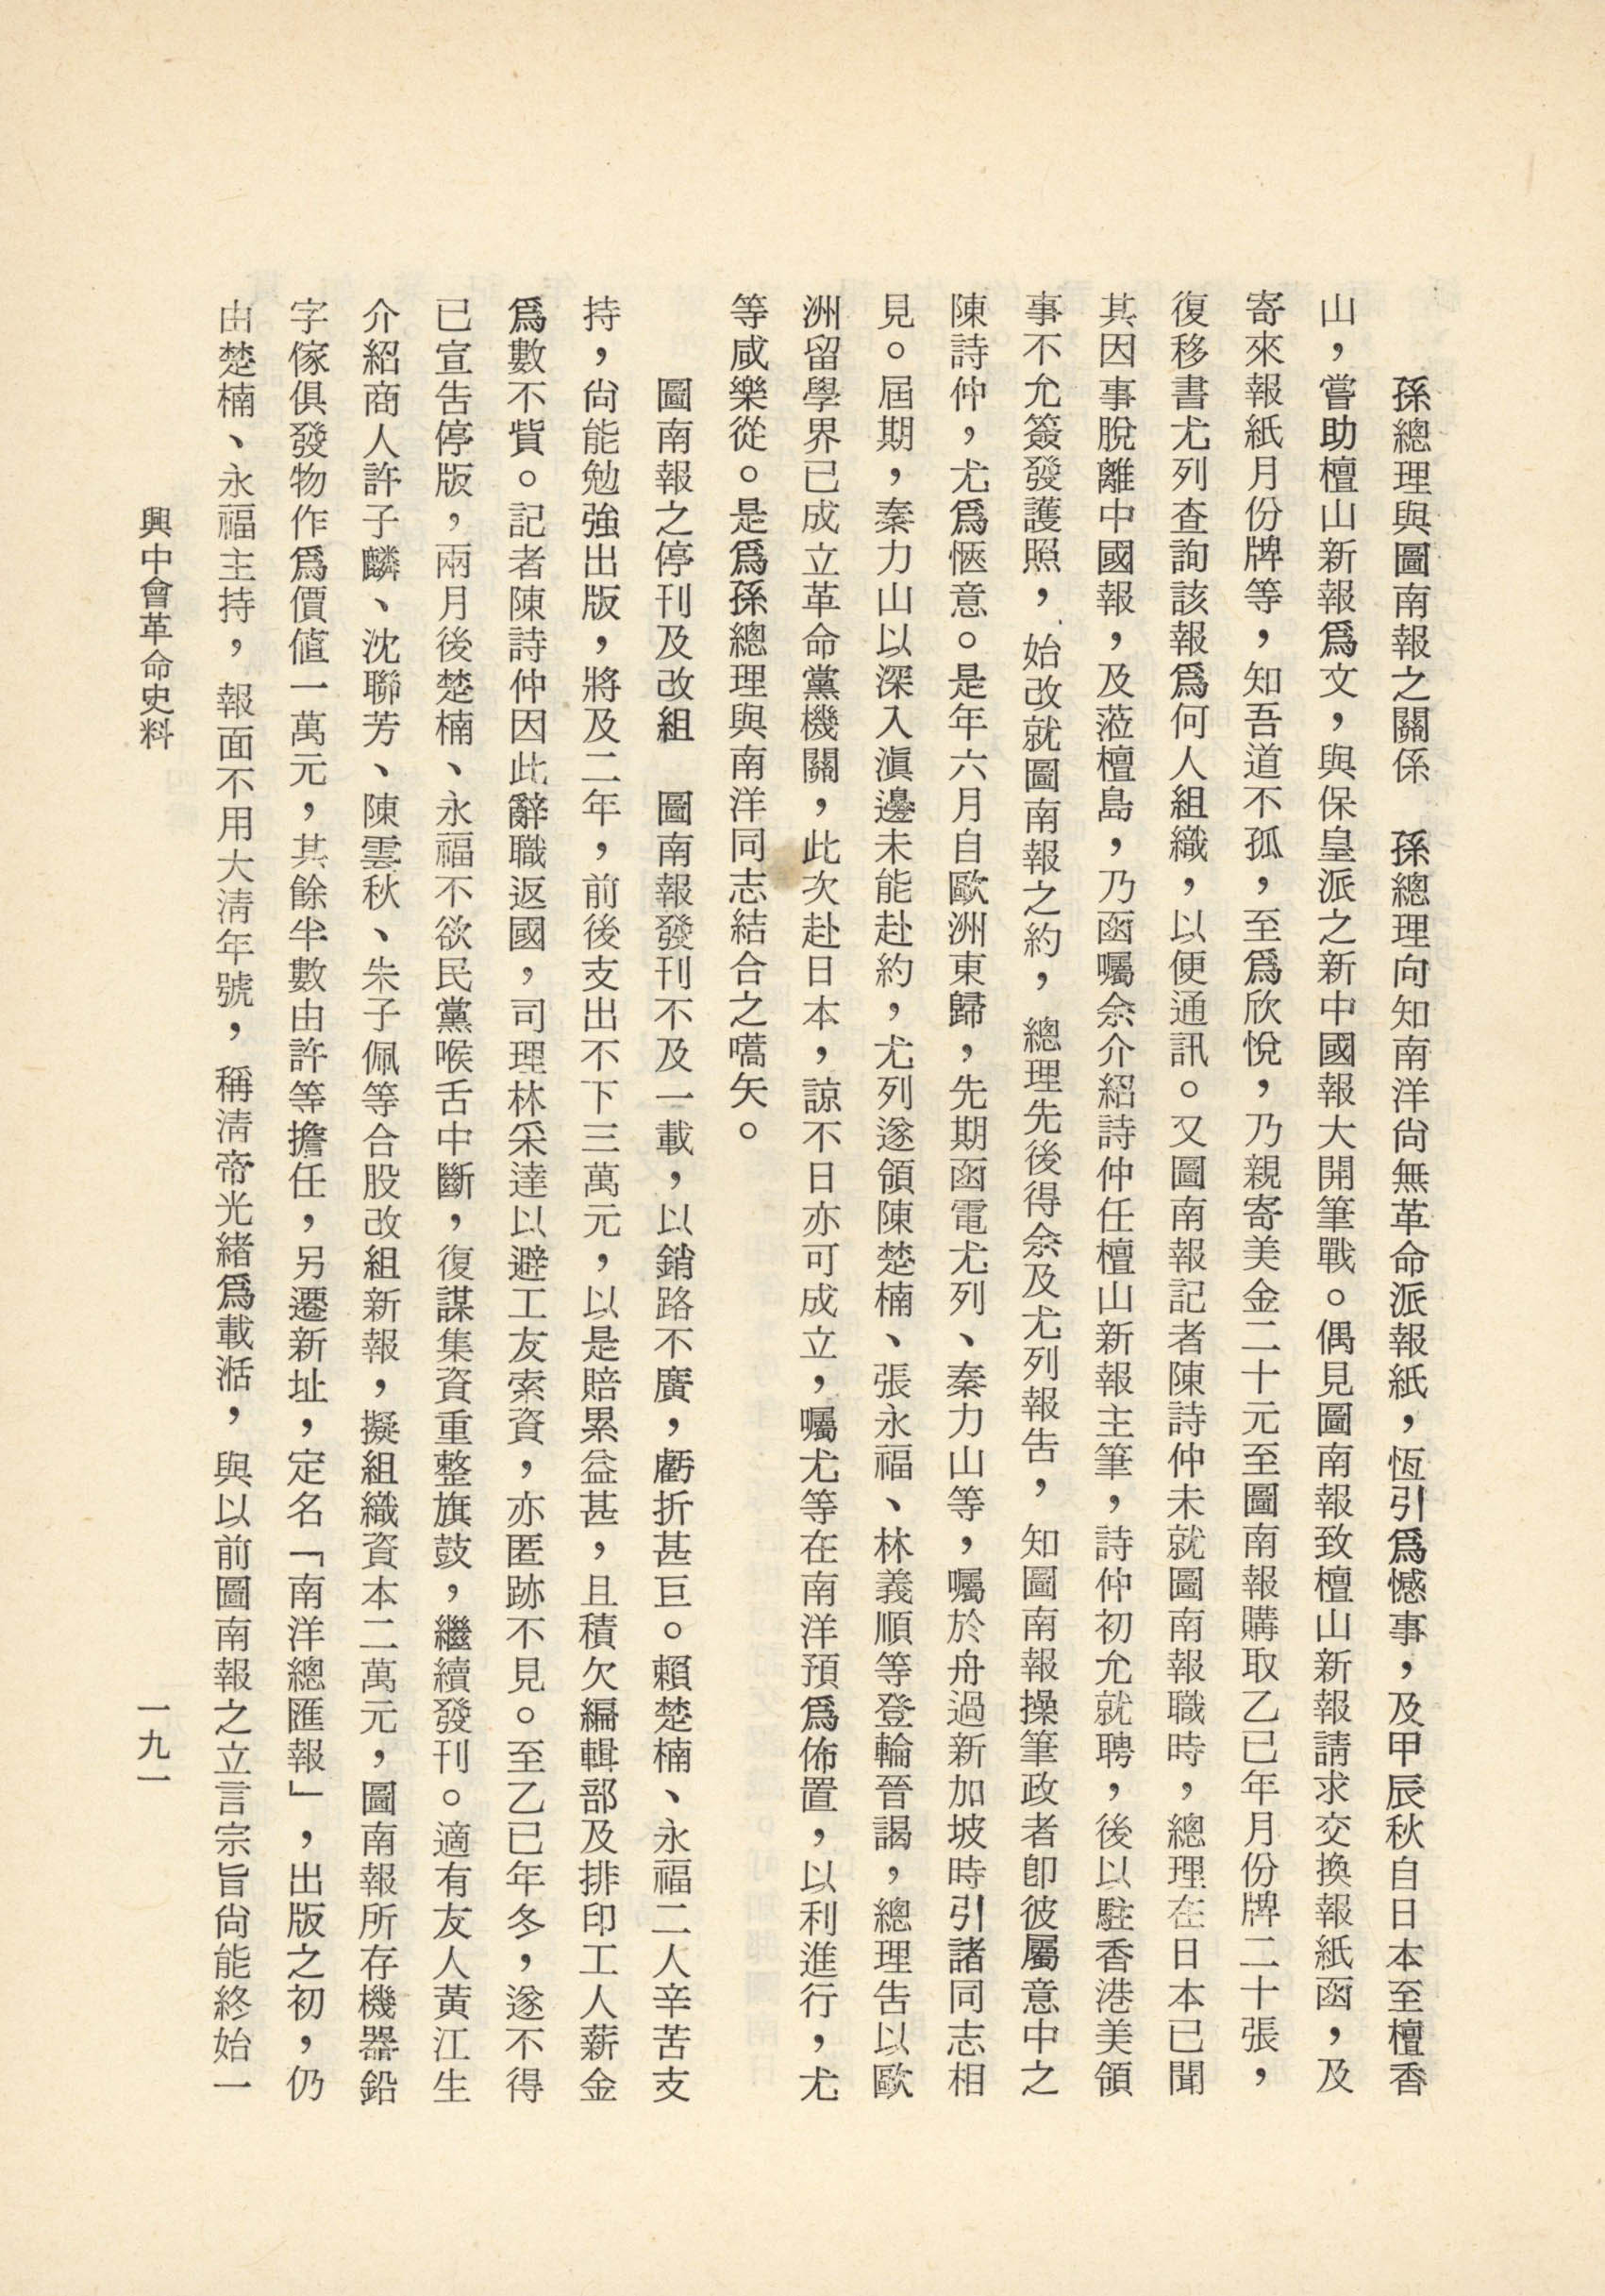 孫總理與圖南報之關係　孫總理向知南洋尙無革命派報紙，恆引爲憾事，及甲辰秋自日本至檀香
山，嘗助檀山新報爲文，與保皇派之新中國報大開筆戰。偶見圖南報致檀山新報請求交換報紙函，及
寄來報紙月份牌等，知吾道不孤，至爲欣悅，乃親寄美金二十元至圖南報購取乙巳年月份牌二十張，
復移書尤列查詢該報爲何人組織，以便通訊。又圖南報記者陳詩仲未就圖南報職時，總理在日本已聞
其因事脫離中國報，及蒞檀島，乃函囑余介紹詩仲任檀山新報主筆，詩仲初允就聘，後以駐香港美領
事不允簽發護照，始改就圖南報之約，總理先後得余及尤列報告，知圖南報操筆政者卽彼屬意中之
陳詩仲，尤爲愜意。是年六月自歐洲東歸，先期函電尤列、秦力山等，囑於舟過新加坡時引諸同志相
見。屆期，秦力山以深入滇邊未能赴約，尤列遂領陳楚楠、張永福、林義順等登輪晉謁，總理告以歐
洲留學界已成立革命黨機關，此次赴日本，諒不日亦可成立，囑尤等在南洋預爲佈置，以利進行，尤
等咸樂從。是爲孫總理與南洋同志結合之嚆矢。
圖南報之停刊及改組　圖南報發刊不及一載，以銷路不廣，虧折甚巨。賴楚楠、永福二人辛苦支
持，尙能勉強出版，將及二年，前後支出不下三萬元，以是賠累益甚，且積欠編輯部及排印工人薪金
爲數不貲。記者陳詩仲因此辭職返國，司理林采達以避工友索資，亦匿跡不見。至乙巳年冬，遂不得
已宣告停版，兩月後楚楠、永福不欲民黨喉舌中斷，復謀集資重整旗鼓，繼續發刊。適有友人黃江生
介紹商人許子麟、沈聯芳、陳雲秋、朱子佩等合股改組新報，擬組織資本二萬元，圖南報所存機器鉛
字傢俱發物作爲價値一萬元，其餘半數由許等擔任，另遷新址，定名「南洋總匯報」，出版之初，仍
由楚楠、永福主持，報面不用大淸年號，稱淸帝光緒爲載湉，與以前圖南報之立言宗旨尙能終始一
興中會革命史料
一九一